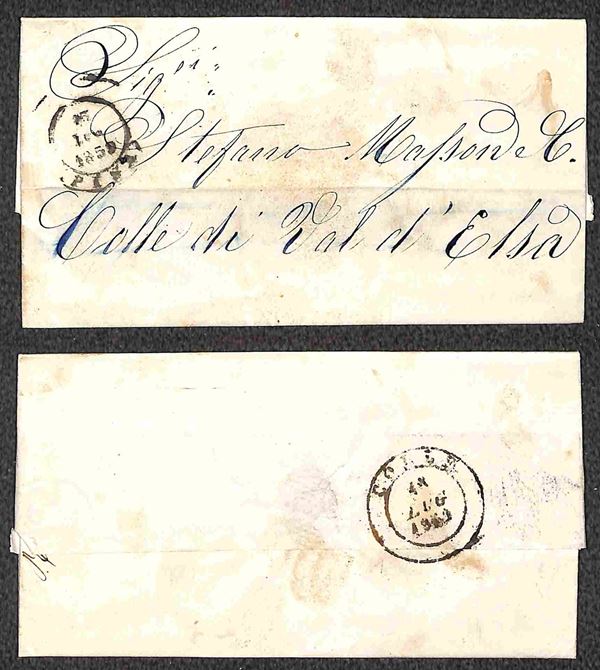 Sig.ri
Stefano Masson e C.
Colle di Val d'Elsa
LUG
1859
PISA
COLLE
18
LUG
1859